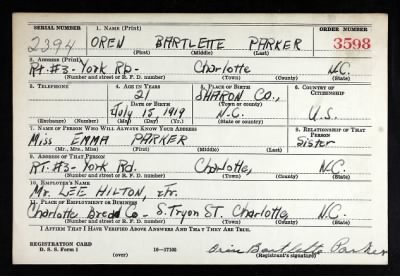 SERIAL NUMBER 1. NAME (Print) ORDER NUMBER
2394 OREN BARTLETTE PARKER 3598
(First) (Middle) (Last)
2. ADDRESS (Print)
Rt. #3- York Rd- Charlotte N.C.
(Number and street or R. F. D. number) (Town) (County) (State)
3. TELEPHONE 4. AGE IN YEARS 5. PLACE OF BIRTH 6. COUNTRY OF CITIZENSHIP
21 SHARON CO.,
DATE OF BIRTH (Town or county)
July 15 1919 N.C. U.S.
(Exchange) (Number) (Mo.) (Day) (Yr.) (State or country)
7. NAME OF PERSON WHO WILL ALWAYS KNOW YOUR ADDRESS 8. RELATIONSHIP OF THAT PERSON
Miss EMMA PARKER Sister
(Mr., Mrs., Miss) (First) (Middle) (Last)
9. ADDRESS OF THAT PERSON
RT. #3- York Rd. Charlotte, N.C.
(Number and street or R. F. D. number) (Town) (County) (State)
10. EMPLOYER'S NAME
Mr. LEE HILTON, Jr.
11. PLACE OF EMPLOYMENT OR BUSINESS
Charlotte Bread Co- S. Tryon ST. Charlotte, N.C.
(Number and street or R. F. D. number) (Town) (County) (State)
I AFFIRM THAT I HAVE VERIFIED ABOVE ANSWERS AND THAT THEY ARE TRUE.
REGISTRATION CARD
D. S. S. Form 1 16-17105 Oren Bartlette Parker
(over) (Registrant's signature)